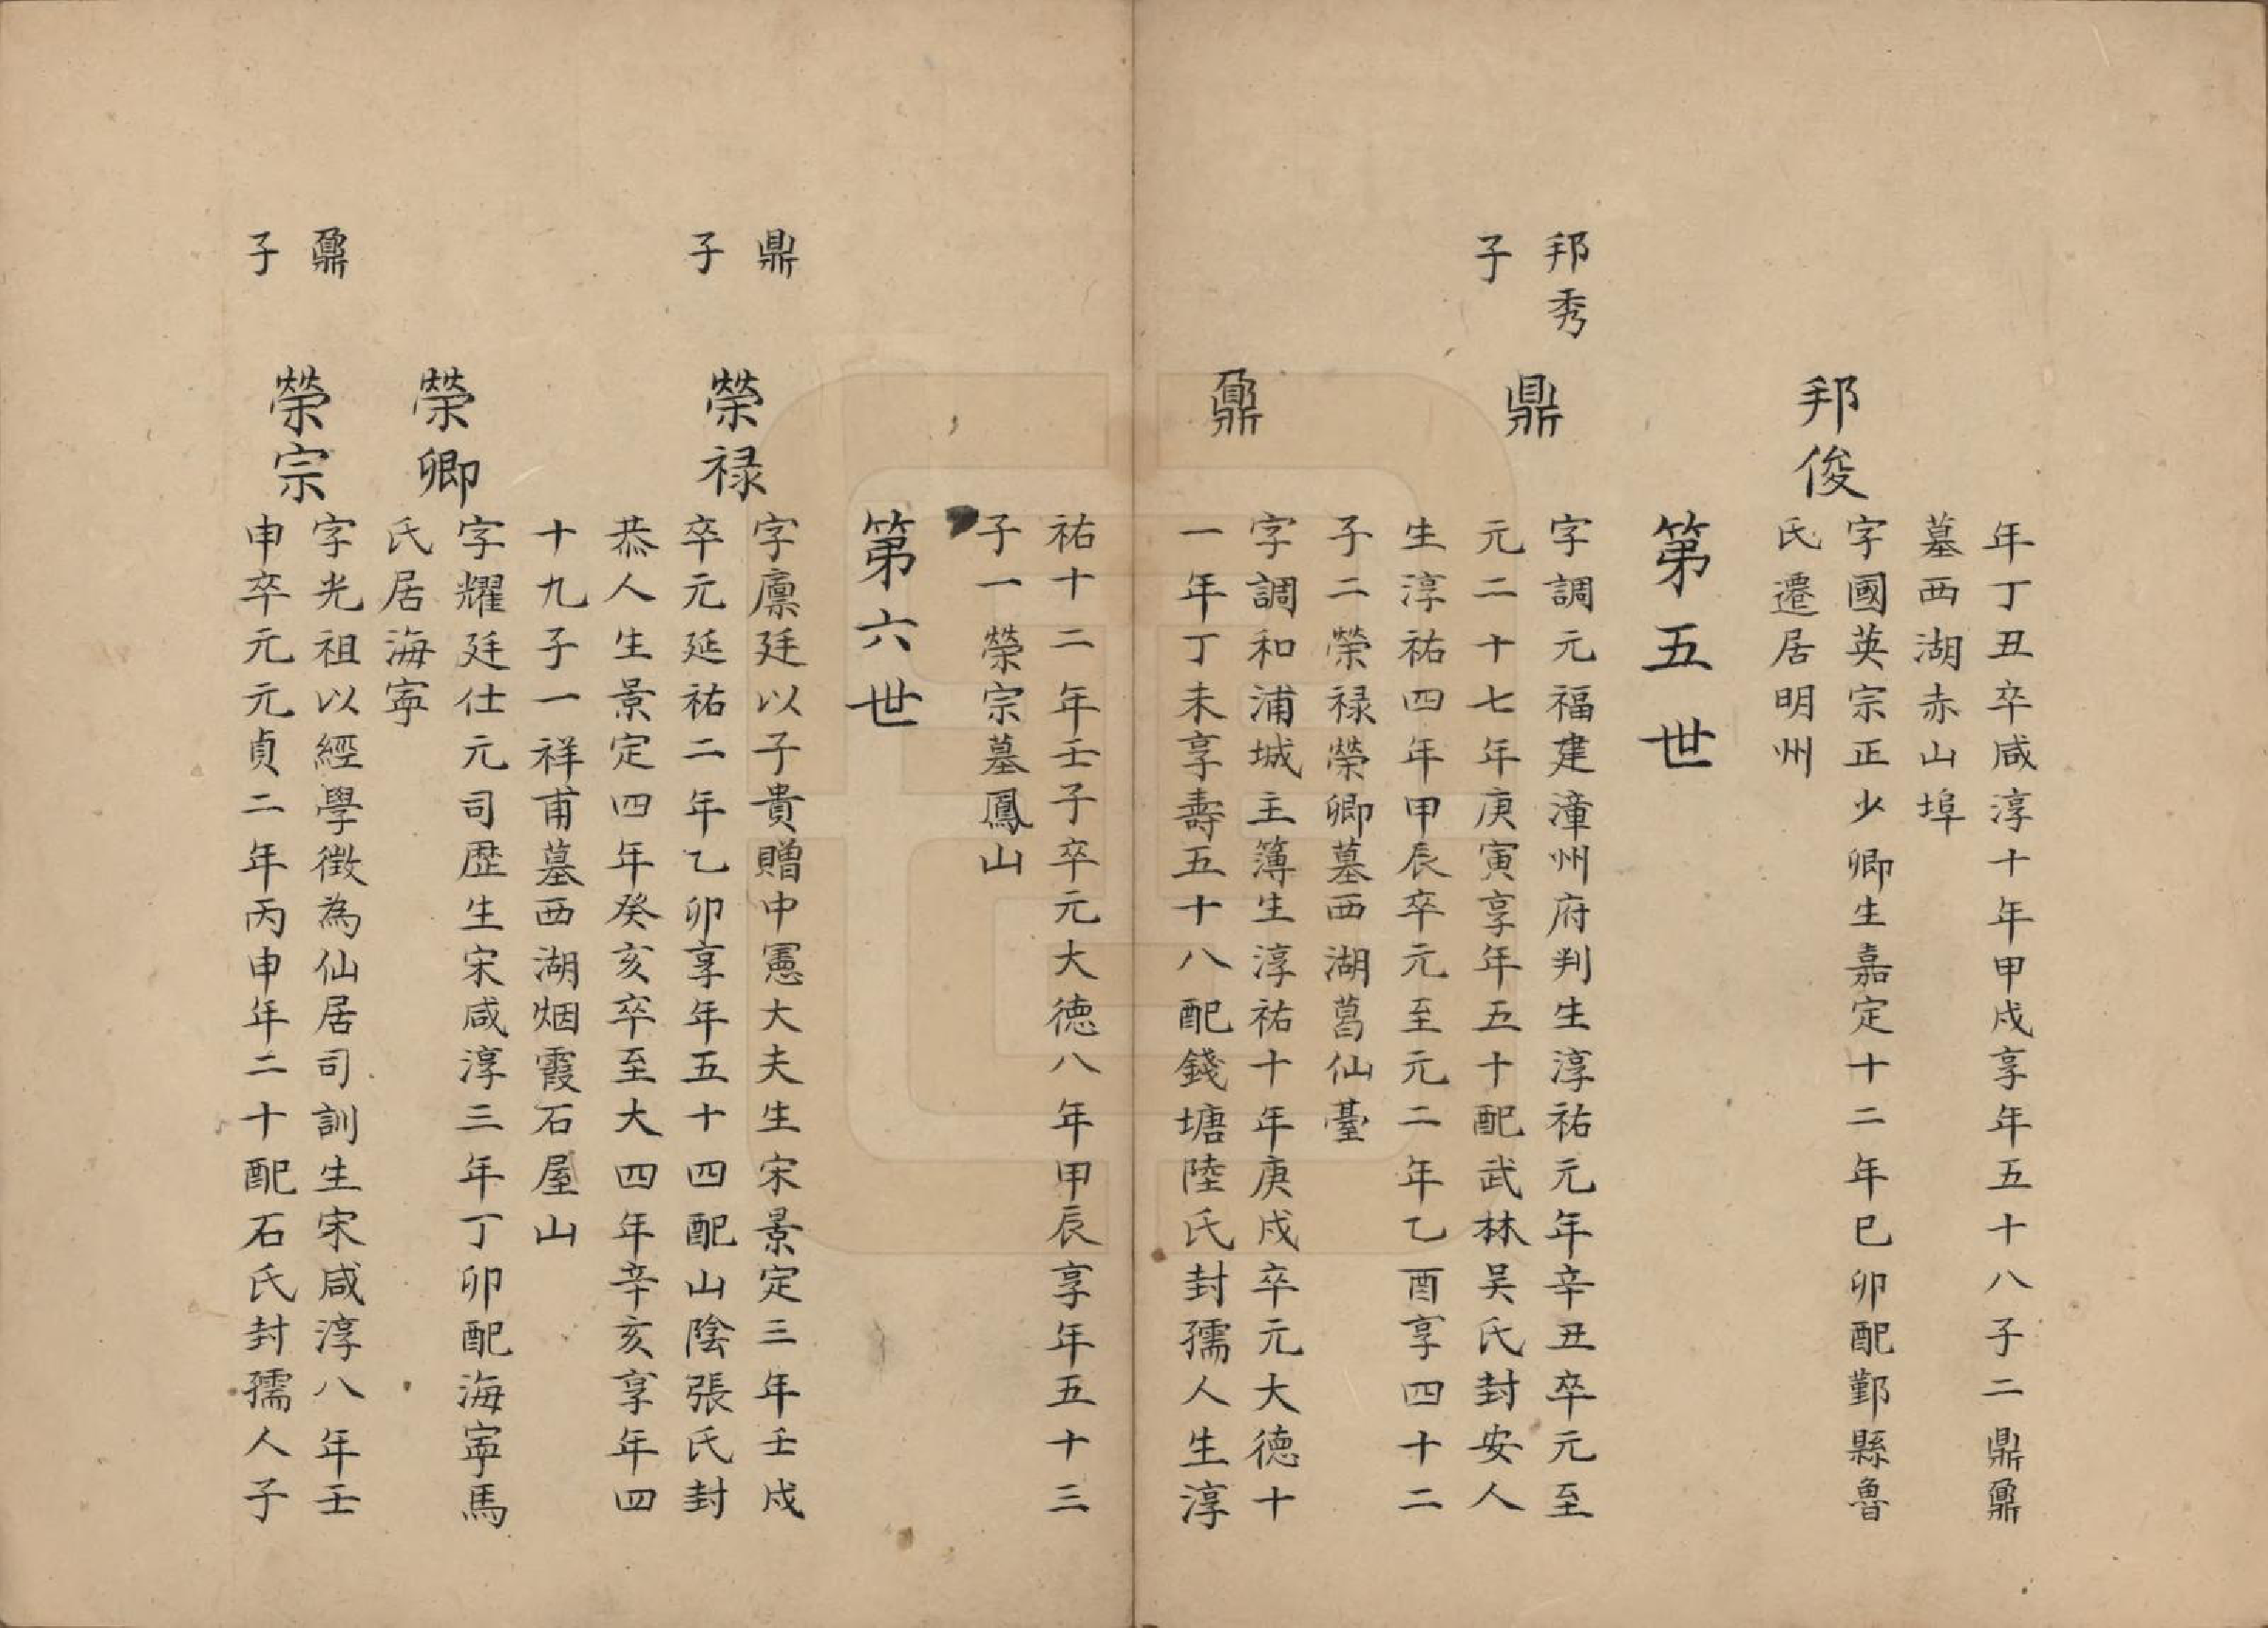 年丁丑卒咸淳十年甲戍享年五十八子二鼎鼐
墓西湖赤山埠
邦俊
字國英宗正少卿生嘉定十二年巳卯配鄞縣魯
氏遷居明州
第五世
邦秀
子
鼎
字調元福建漳州府判生淳祐元年辛丑卒元至
元二十七年庚寅享年五十配武林吴氏封安人
生淳祐四年甲辰卒元至元二年乙酉享四十二
子二榮禄榮卿墓西湖葛仙臺
鼐
字調和浦城主簿生淳祐十年庚戍卒元大德十
一年丁未享壽五十八配錢塘陸氏封孺人生淳
祐十二年壬子卒元大德八年甲辰享年五十三
子一榮宗墓鳳山
第六世
鼎
子
榮禄
字廪廷以子貴贈中憲大夫生宋景定三年壬戍
卒元延祐二年乙卯享年五十四配山陰張氏封
恭人生景定四年癸亥卒至大四年辛亥享年四
十九子一祥甫墓西湖烟霞石屋山
榮卿
字耀廷仕元司歴生宋咸淳三年丁卯配海寜馬
氏居海寜
鼐
子
榮宗
字光祖以經學徴為仙居司訓生宋咸淳八年壬
申卒元元貞二年丙申年二十配石氏封孺人子